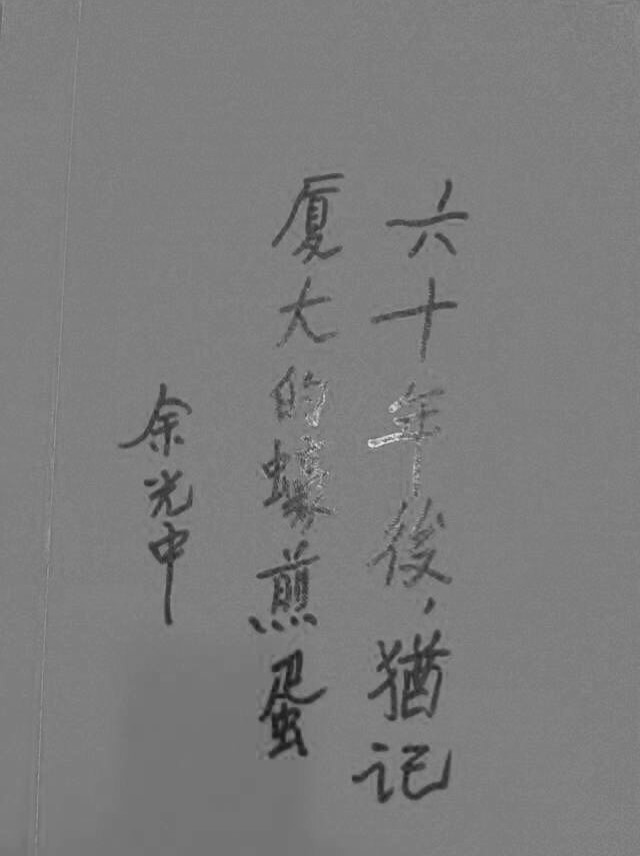 六十年後，猶记
厦大的蠔煎蛋
余光中